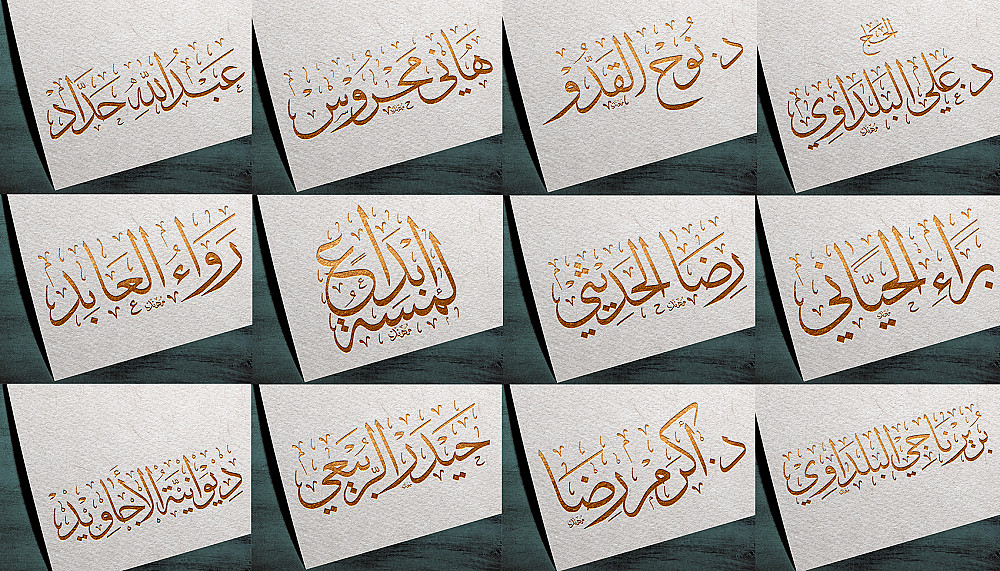 الحاج
د. علي البلداوي
د. نوح القدو
هاني محروس
عبدالله حداد
براء الحياني
رضا الحديثي
لمسة إبداع
رواء العابد
برير ناجي البلداوي
د. أكرم رضا
حيدر الربيعي
ديوانية الأجاويد